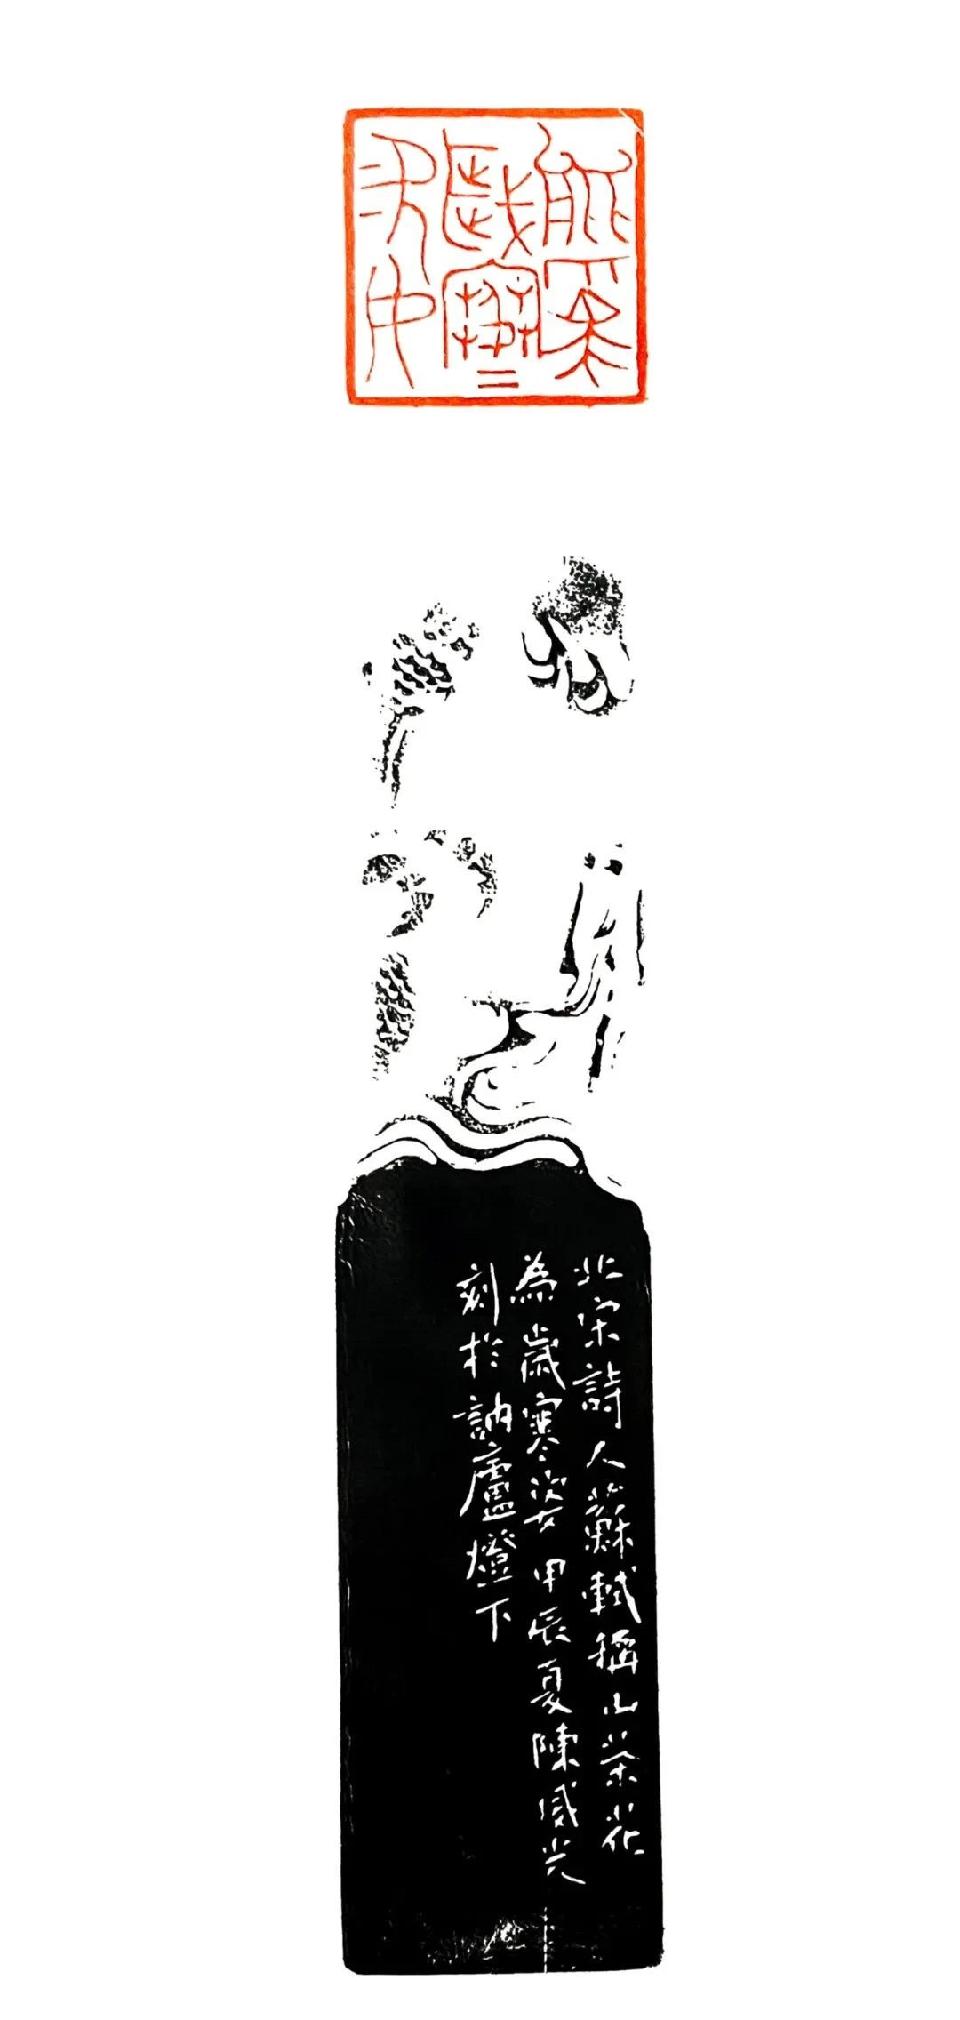 能
歲寒
北宋詩人蘇軾稱山茶花
為歲寒姿甲辰夏陳咸光
刻於訥廬燈下